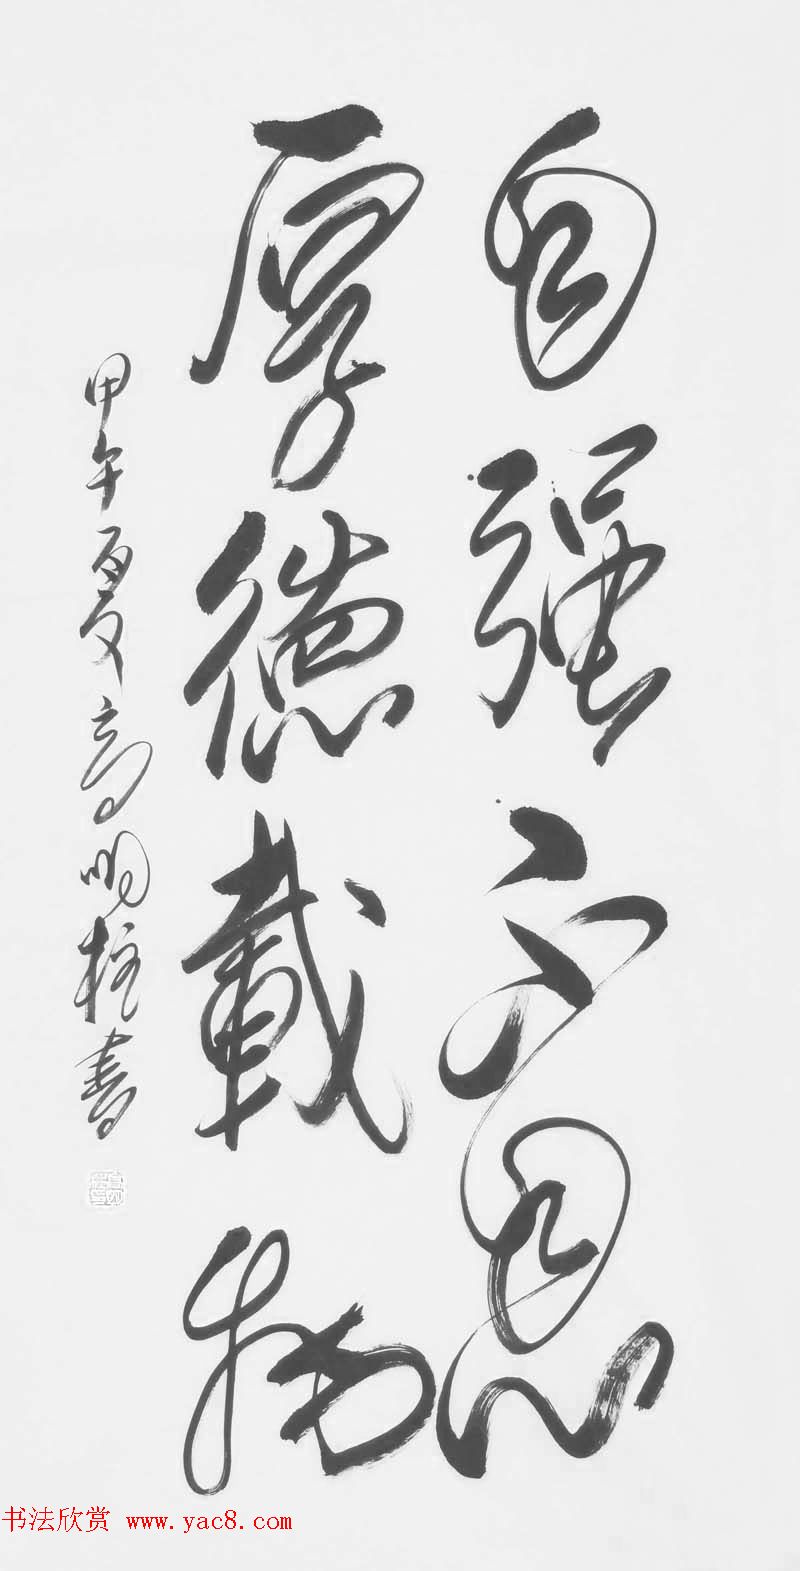 自强不息
厚德載物
甲午夏高明柱書
书法欣赏 www.yac8.com